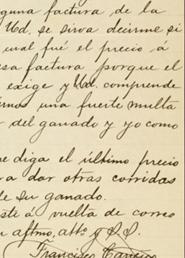 guna factura de la
Ud. se sirva decirme si
cual fué el precio á
esa factura porque el
exige y Ud. comprende
rnos una fuerte multa
r del ganado y yo como
me diga el último precio
ra dar otras corridas
de su ganado.
ste á vuelta de correo
n aftmo. atto. y S.S.
Francisco